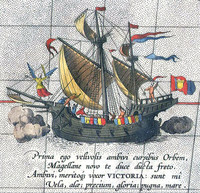 Prima ego velivolis ambivi cursibus Orbem,
Magellane novo te duce ducta freto.
Ambivi, meritoq₃ vocor VICTORIA: sunt mi
Vela, alæ; precium, gloria; pugna, mare.